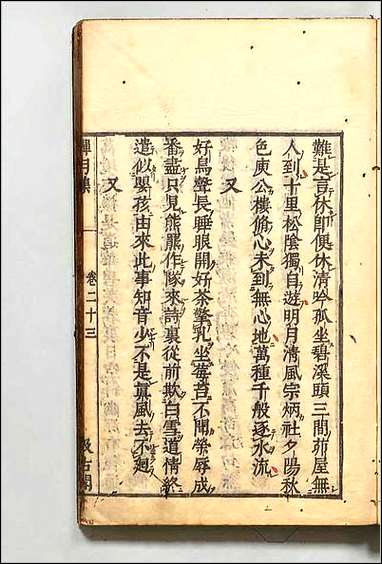 難是言休即便休清吟孤坐碧溪頭三間茆屋無
人到十里松陰獨自遊明月清風宗炳社夕陽秋
色庾公樓脩心未到無心地萬種千般逐水流
又
好鳥聲長睡眼開好茶擎乳坐莓苔不聞榮辱成
番盡只見熊羆作隊來詩裏從前欺白雪道情終
遣似嬰孩由來此事知音少不是眞風去不廻
又
禪月集
卷二十三
汲古閣